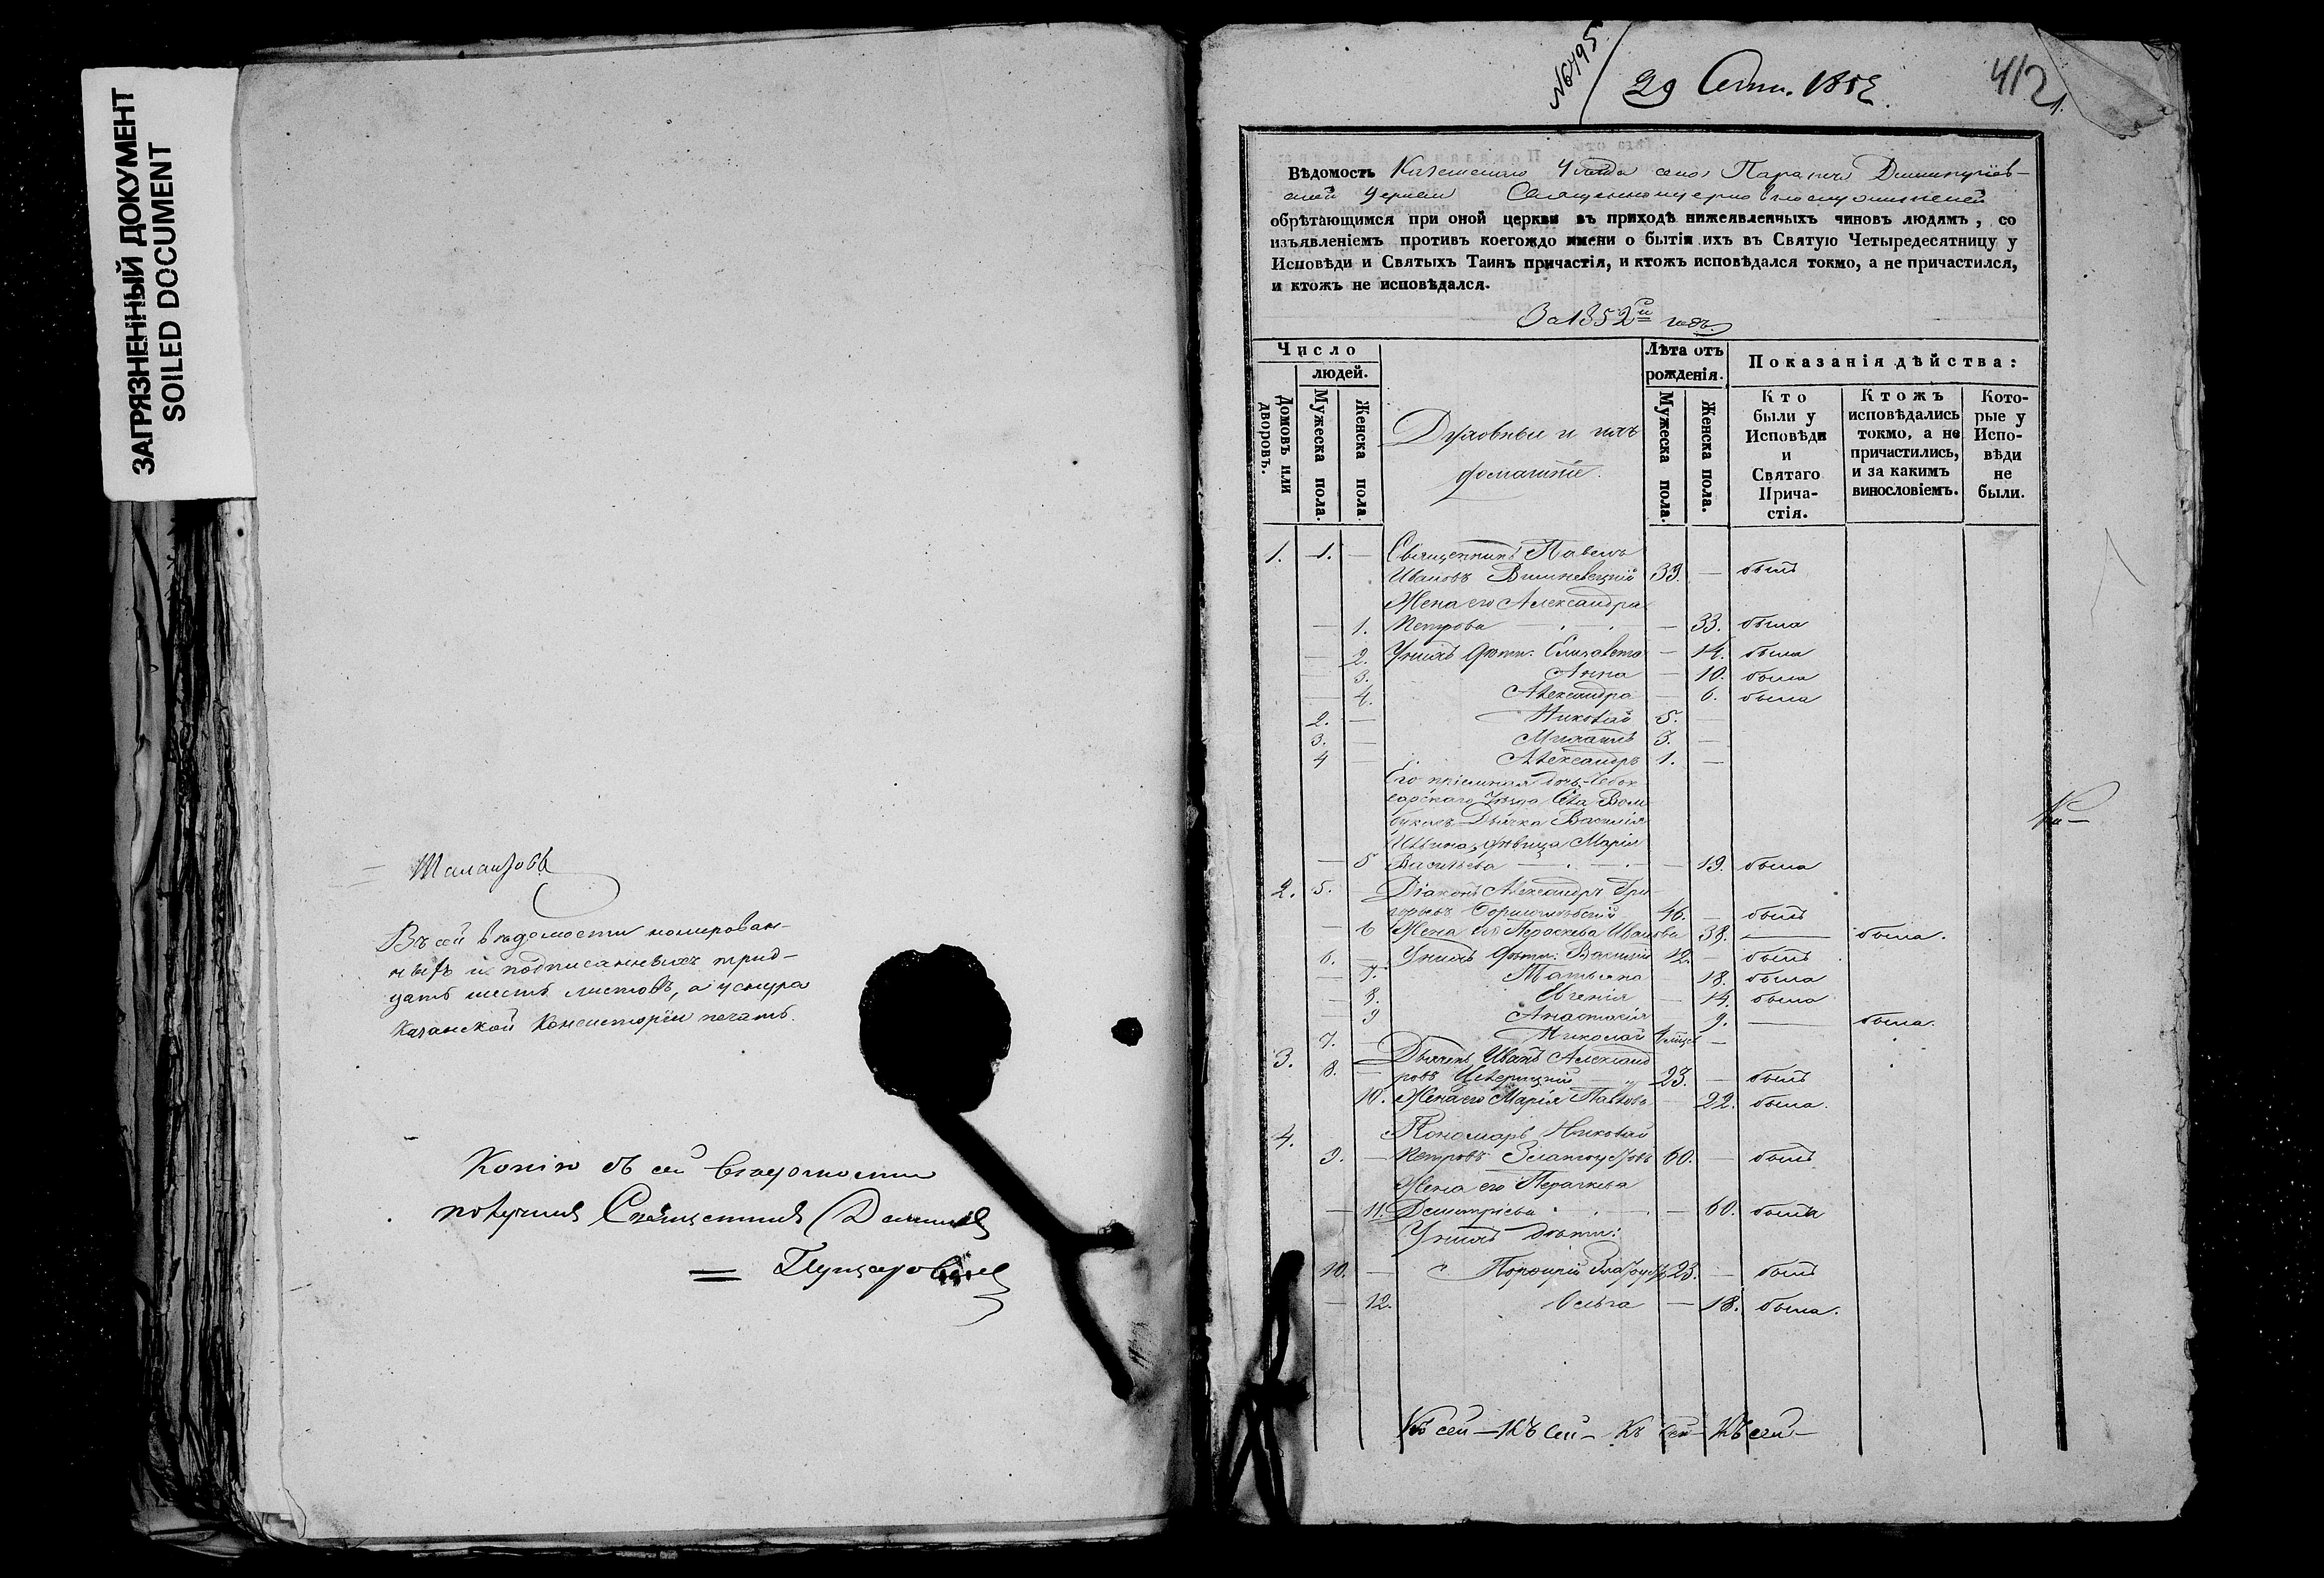 ЗАГРЯЗНЕННЫЙ ДОКУМЕНТ
SOILED DOCUMENT
Въ сей ведомости номирован-
ныхъ и подписанныхъ трид-
цать шесть листовъ, а у снура
Казанской Консисторіи печать.
Копію съ сей ведомости
получилъ Священникъ
№6495
29 Сент. 1852
412
1.
Вѣдомость Казанскаго Уѣзда села
Церкви
обрѣтающимся при оной церкви въ приходѣ нижеявленныхъ чиновъ людямъ, со
изъявленіемъ противъ коегождо имени о бытіи ихъ въ Святую Четыредесятницу у
Исповѣди и Святыхъ Таинъ причастія, и ктожъ исповѣдался токмо, а не причастился,
и ктожъ не исповѣдался.
За 1852й годъ.
Число
людей.
Домовъ или дворовъ.
Мужеска пола.
Женска пола
Духовные и ихъ
домашніе.
Лѣта отъ
рожденія.
Мужеска пола.
Женска пола.
Показанія дѣйства:
Кто
были у
Исповѣди
и
Святаго
Прича-
стія.
Ктожъ
исповѣдались
токмо, а не
причастились,
и за какимъ
винословіемъ.
Кото-
рые у
Испо-
вѣди
не
были.
1. 1. — Священникъ Павелъ
Ивановъ Вишневецкій 39. — былъ
Жена его Александра
— 1. Петрова — 33. была
— 2. У нихъ дѣти: Елизавета — 14. была
— 3. Анна — 10. была
— 4. Александра — 6. была
2. — Николай 5. —
3. — Михаилъ 3. —
4 — Александръ 1. —
Его пріемная дочь Чебок
сарскаго Уѣзда Села
Дьячка Василія
Ильина, дѣвица Марія
— 5 Васильева — 19. была
2. 5. — Діаконъ Александръ Гри
горьевъ 46. — былъ
— 6 Жена его Параскева Иванова 38. — была.
6. — У нихъ дѣти: Василій 12. — былъ
— 7. Татьяна 18. была
— 8. Евгенія — 14. была
— 9 Анастасія 9. — была.
7. — Николай —
3. 8. — Дьячекъ Иванъ Александ
ровъ 23. — былъ
10. Жена его Марія Павлова — 22. была.
4. Пономарь Николай
9. — Петровъ Златоустовъ 60. — былъ
Жена его Параскева
— 11. Димитріева — 60. была
У нихъ дѣти:
10. — Порфирій 23. — былъ
— 12. Ольга — 18. была.
Къ сей — Къ сей — Къ сей — Къ сей —